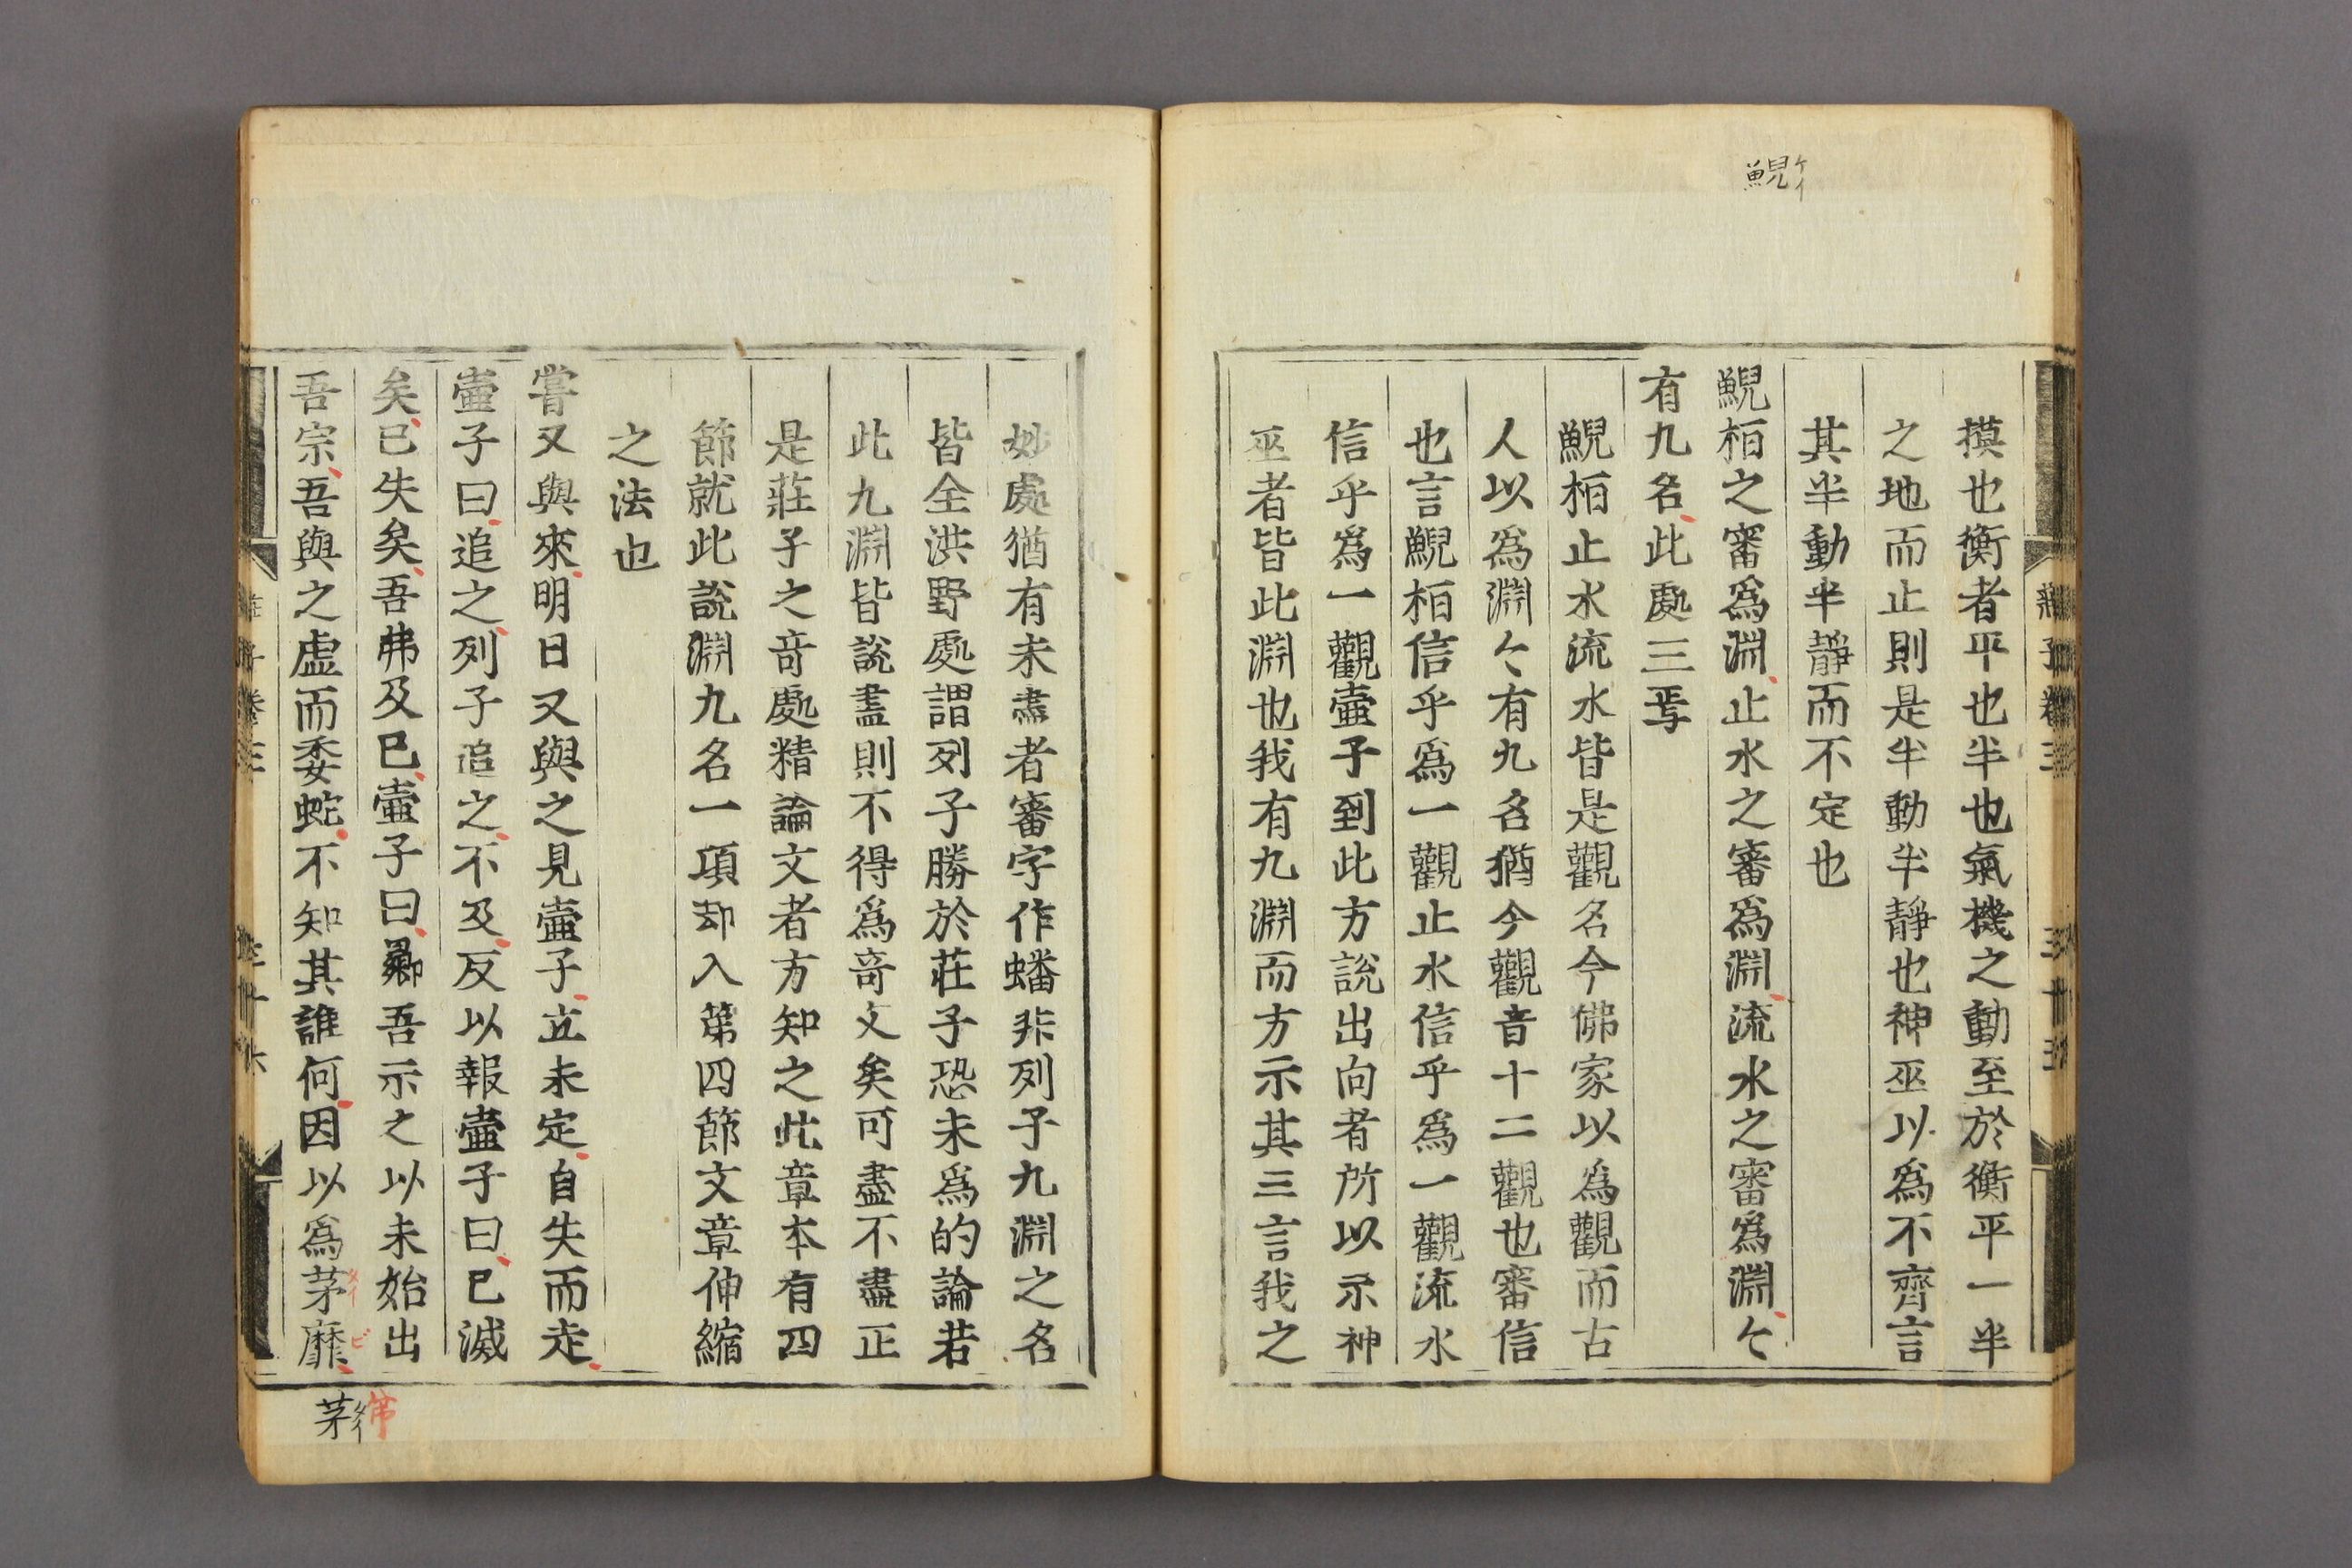 鯢ケイ
莊子卷三 三十五
摸也衡者平也半也氣機之動至於衡平一半
之地而止則是半動半靜也神巫以爲不齊言
其半動半靜而不定也
鯢栢之審爲淵止水之審爲淵流水之審爲淵々
有九名此處三焉
鯢栢止水流水皆是觀名今佛家以爲觀而古
人以爲淵々有九名猶今觀音十二觀也審信
也言鯢栢信乎爲一觀止水信乎爲一觀流水
信乎爲一觀壷子到此方說出向者所以示神
巫者皆此淵也我有九淵而方示其三言我之
妙處猶有未盡者審字作蟠非列子九淵之名
皆全洪野處謂列子勝於莊子恐未爲的論若
此九淵皆說盡則不得爲竒文矣可盡不盡正
是莊子之竒處精論文者方知之此章本有四
節就此說淵九名一項却入第四節文章伸縮
之法也
嘗又與來明日又與之見壷子立未定自失而走
壷子曰追之列子追之不及反以報壷子曰已滅
矣已失矣吾弗及已壷子曰曏吾示之以未始出
吾宗吾與之虚而委蛇不知其誰何因以爲茅靡
莊子卷三 三十六
メイ ビ
茅メイ
弟